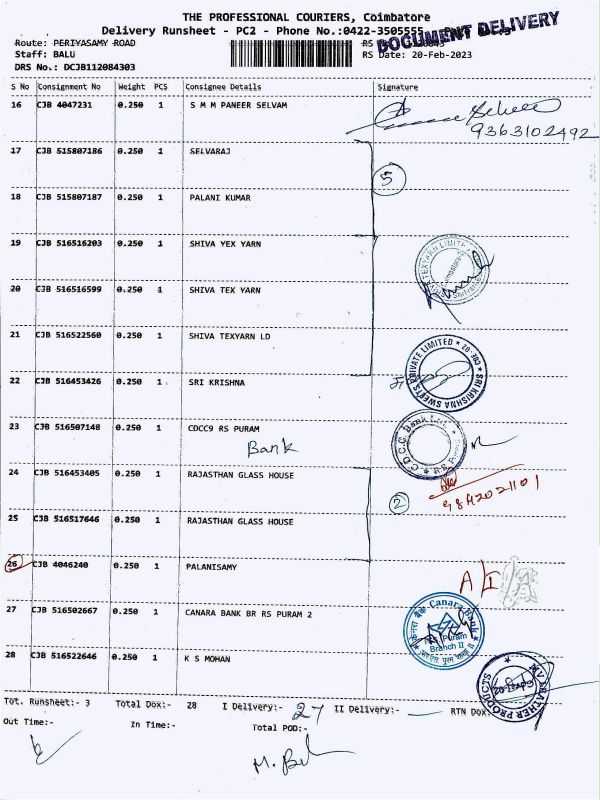 THE PROFESSIONAL COURIERS, Coimbatore
DOCUMENT DELIVERY
Delivery Runsheet - PC2 - Phone No.:0422-3505555
Route: PERIYASAMY ROAD
Staff: BALU RS Date: 20-Feb-2023
DRS No.: DCJB112084303
S No Consignment No Weight PCS Consignee Details Signature
16 CJB 4047231 0.250 1 S M M PANEER SELVAM
9363102492
17 CJB 515807186 0.250 1 SELVARAJ
5
18 CJB 515807187 0.250 1 PALANI KUMAR
19 CJB 516516203 0.250 1 SHIVA YEX YARN
20 CJB 516516599 0.250 1 SHIVA TEX YARN
21 CJB 516522560 0.250 1 SHIVA TEXYARN LD
SRI KRISHNA SWEETS PRIVATE LIMITED * CBE-02 *
22 CJB 516453426 0.250 1 SRI KRISHNA
23 CJB 516507148 0.250 1 CDCC9 RS PURAM
Bank
24 CJB 516453405 0.250 1 RAJASTHAN GLASS HOUSE
9842021101
2
25 CJB 516517646 0.250 1 RAJASTHAN GLASS HOUSE
26 CJB 4046240 0.250 1 PALANISAMY
27 CJB 516502667 0.250 1 CANARA BANK BR RS PURAM 2
केनरा बैंक Canara Bank
R.S. Puram
Branch II
28 CJB 516522646 0.250 1 K S MOHAN
Tot. Runsheet:- 3 Total Dox:- 28 I Delivery:- 27 II Delivery:- RTN Dox:-
Out Time:- In Time:- Total POD:-